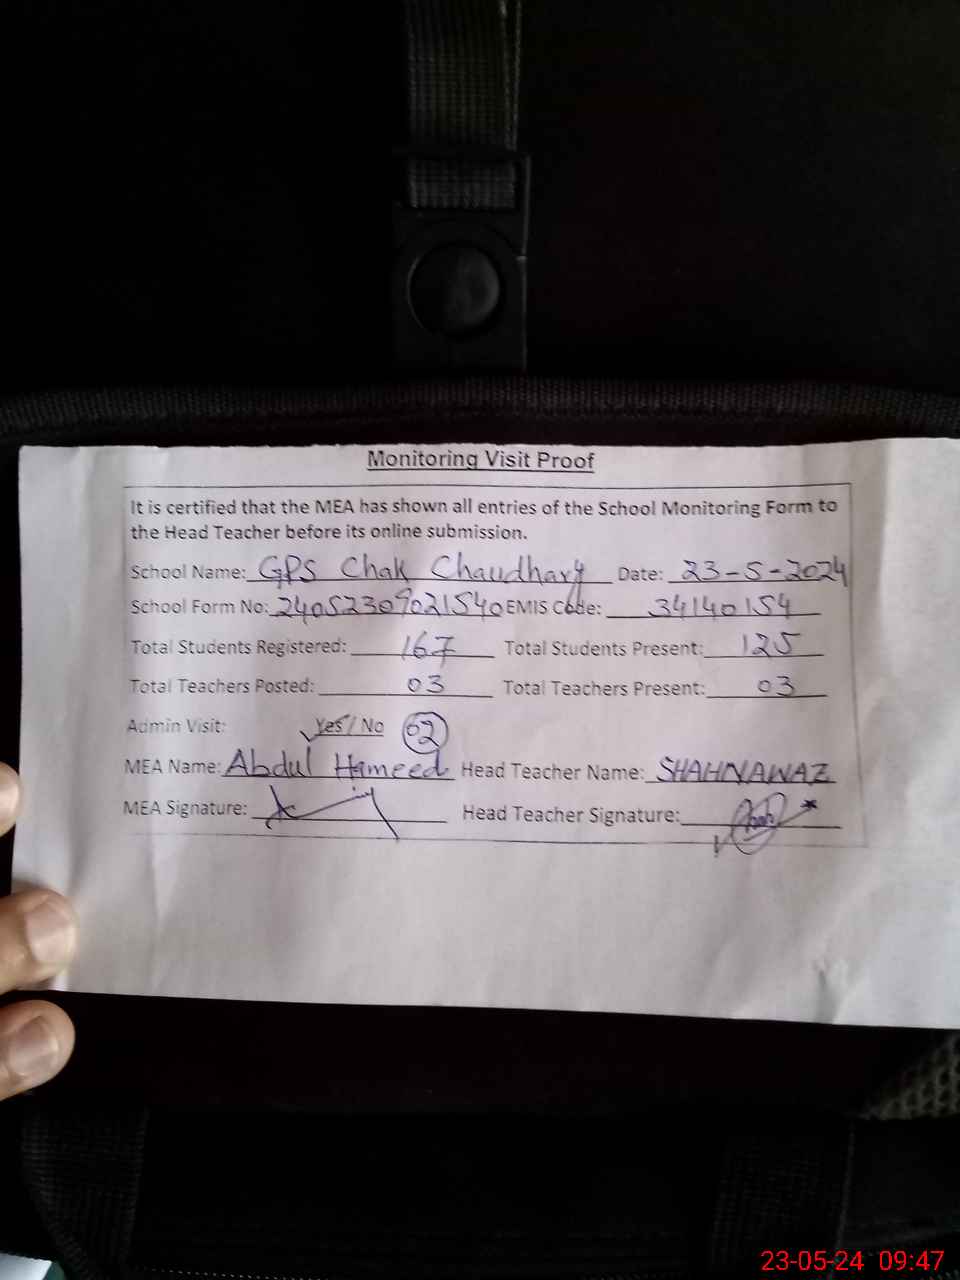 Monitoring Visit Proof
It is certified that the MEA has shown all entries of the School Monitoring Form to
the Head Teacher before its online submission.
School Name: GPS Chak Chaudhary Date: 23-5-2024
School Form No: 24052309021540 EMIS Code: 34140154
Total Students Registered: 167 Total Students Present: 125
Total Teachers Posted: 03 Total Teachers Present: 03
Admin Visit: Yes / No 02
MEA Name: Abdul Hameed Head Teacher Name: SHAHNAWAZ
MEA Signature: Head Teacher Signature:
23-05-24 09:47